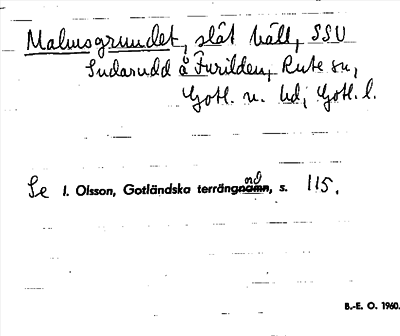 Malmsgrundet, slät häll, SSV
Sudarudd å Furilden, Rute sn,
Gotl. n. hd, Gotl. l.
Se I. Olsson, Gotländska terrängnamn, s. 115.
nd
B.-E. O. 1960.